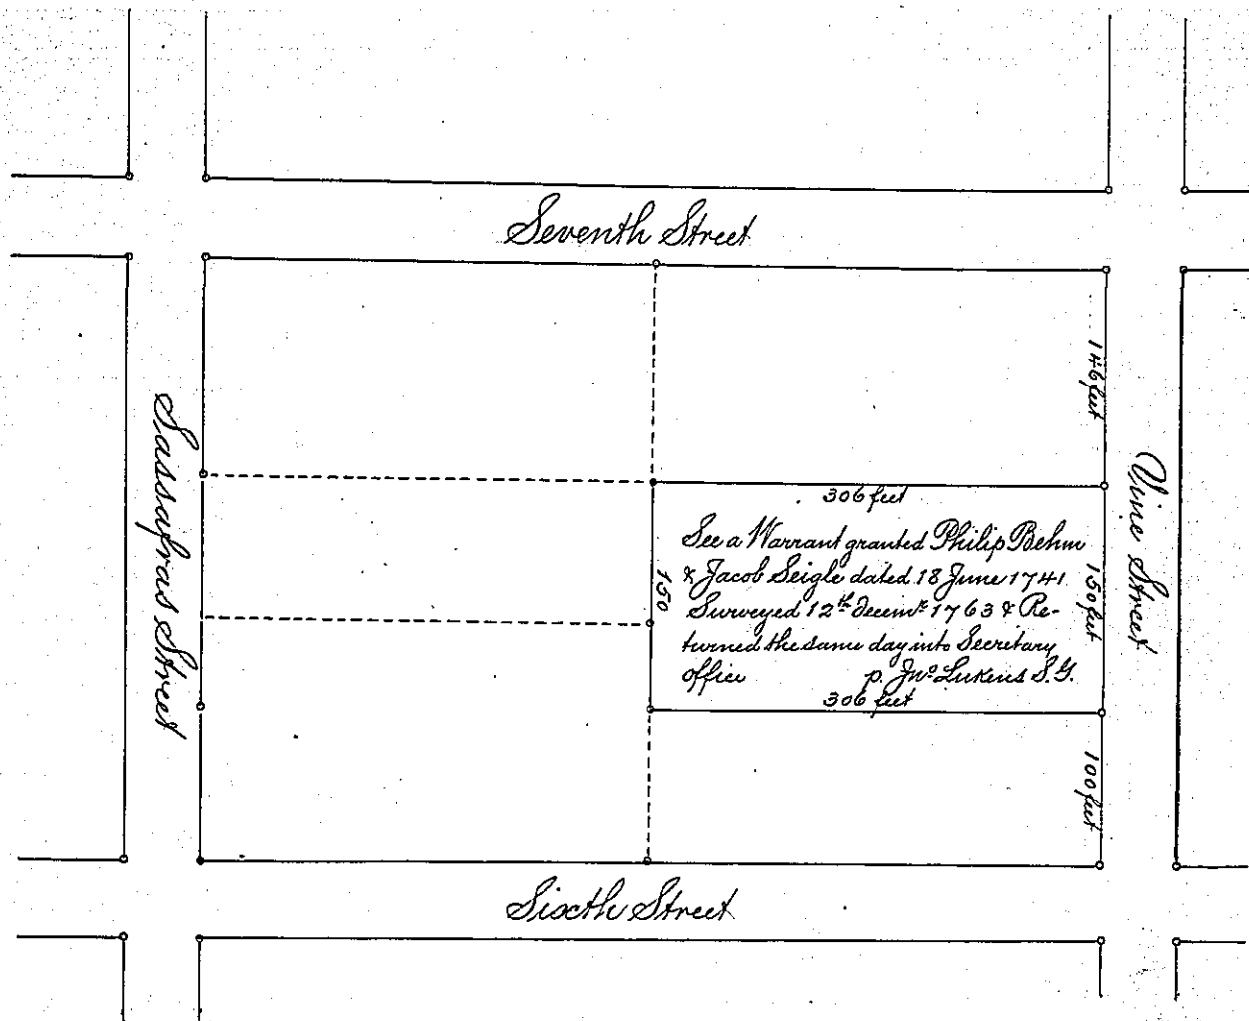 Seventh Street
Sassafras Street
Vine Street
146 feet
306 feet
See a Warrant granted Philip Behm
& Jacob Seigle dated 18 June 1741
Surveyed 12th Decemr 1763 & Re-
turned the same day into Secretary
office p. Jno Lukens S.G.
306 feet
150
150 feet
100 feet
Sixth Street